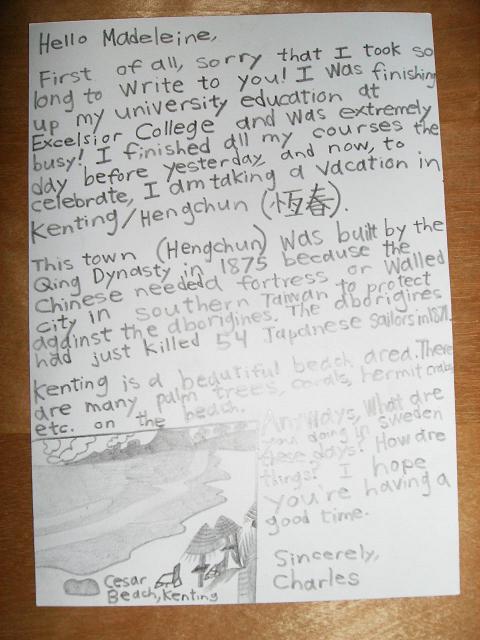 Hello Madeleine,
First of all, sorry that I took so
long to write to you! I was finishing
up my university education at
Excelsior College and was extremely
busy! I finished all my courses the
day before yesterday, and now, to
celebrate, I am taking a vacation in
Kenting/Hengchun (恆春).
This town (Hengchun) was built by the
Qing Dynasty in 1875 because the
Chinese needed a fortress or walled
city in southern Taiwan to protect
against the aborigines. The aborigines
had just killed 54 Japanese sailors in 1871.
Kenting is a beautiful beach area. There
are many palm trees, corals, hermit crabs,
etc. on the beach.
Anyways, what are
you doing in Sweden
these days? How are
things? I hope
you're having a
good time.
Sincerely,
Charles
Cesar
Beach, Kenting